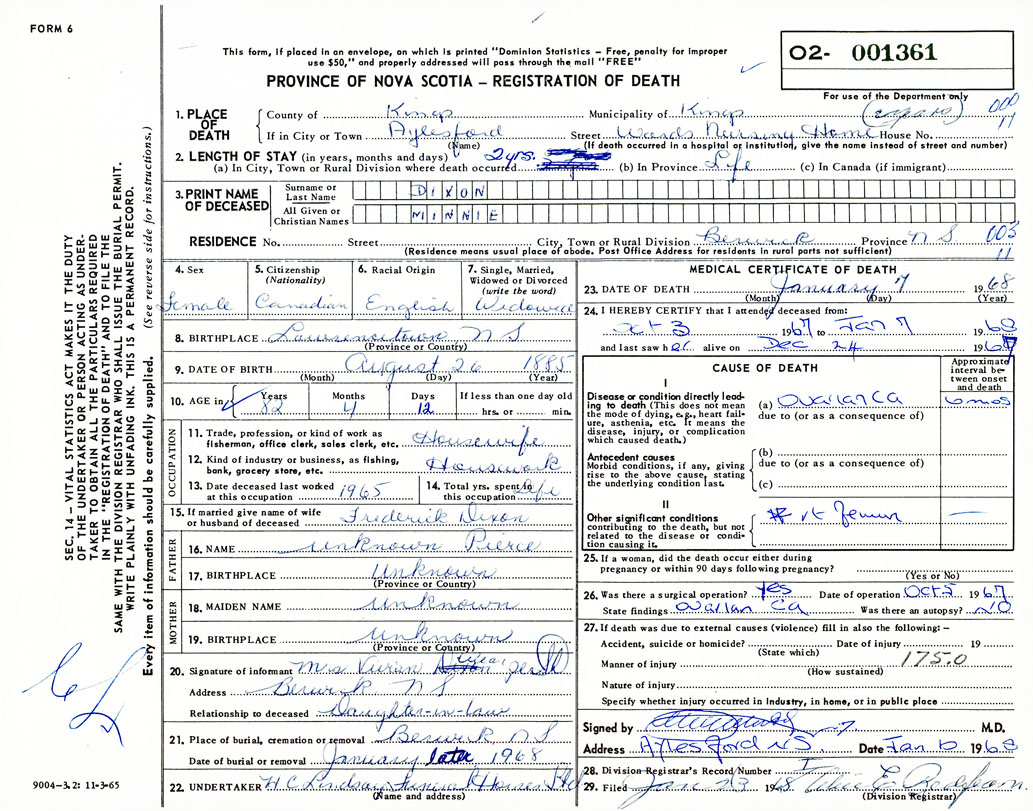 FORM 6
This form, if placed in an envelope, on which is printed "Dominion Statistics – Free, penalty for improper
use $50," and properly addressed will pass through the mail "FREE"
PROVINCE OF NOVA SCOTIA – REGISTRATION OF DEATH
O2- 001361
For use of the Department only
1. PLACE OF DEATH
County of Kings Municipality of Kings 000
If in City or Town Aylesford Street Wards Nursing Home House No. 11
(Name) (If death occurred in a hospital or institution, give the name instead of street and number)
2. LENGTH OF STAY (in years, months and days) 2 yrs.
(a) In City, Town or Rural Division where death occurred (b) In Province Life (c) In Canada (if immigrant)
3. PRINT NAME OF DECEASED
Surname or Last Name DIXON
All Given or Christian Names MINNIE
RESIDENCE No. Street City, Town or Rural Division Berwick Province N S 003
(Residence means usual place of abode. Post Office Address for residents in rural parts not sufficient) 11
4. Sex Female
5. Citizenship (Nationality) Canadian
6. Racial Origin English
7. Single, Married, Widowed or Divorced (write the word) Widowed
8. BIRTHPLACE Lawrencetown N S
(Province or Country)
9. DATE OF BIRTH August 26 1885
(Month) (Day) (Year)
10. AGE in Years Months Days If less than one day old
82 4 12 hrs. or min.
OCCUPATION
11. Trade, profession, or kind of work as fisherman, office clerk, sales clerk, etc. Housewife
12. Kind of industry or business, as fishing, bank, grocery store, etc. Housework
13. Date deceased last worked at this occupation 1965
14. Total yrs. spent in this occupation Life
15. If married give name of wife or husband of deceased Frederick Dixon
FATHER
16. NAME unknown Pierce
17. BIRTHPLACE Unknown
(Province or Country)
MOTHER
18. MAIDEN NAME unknown
19. BIRTHPLACE Unknown
(Province or Country)
20. Signature of informant Mrs Vivian
Address Berwick N S
Relationship to deceased Daughter-in-law
21. Place of burial, cremation or removal Berwick, N S
Date of burial or removal January later 1968
22. UNDERTAKER H C Lindsay Funeral Homes Ltd
(Name and address)
MEDICAL CERTIFICATE OF DEATH
23. DATE OF DEATH January 7 1968
(Month) (Day) (Year)
24. I HEREBY CERTIFY that I attended deceased from:
Oct 3 1967 to Jan 7 1968
and last saw her alive on Dec 24 1967
CAUSE OF DEATH
Approximate interval between onset and death
I
Disease or condition directly leading to death (This does not mean the mode of dying, e.g., heart failure, asthenia, etc. It means the disease, injury, or complication which caused death.)
(a) Ovarian Ca 6 mos
due to (or as a consequence of)
Antecedent causes
Morbid conditions, if any, giving rise to the above cause, stating the underlying condition last.
(b)
due to (or as a consequence of)
(c)
II
Other significant conditions contributing to the death, but not related to the disease or condition causing it.
# rt femur —
25. If a woman, did the death occur either during pregnancy or within 90 days following pregnancy?
(Yes or No)
26. Was there a surgical operation? yes Date of operation Oct 5 1967
State findings Ovarian Ca Was there an autopsy? NO
27. If death was due to external causes (violence) fill in also the following: –
Accident, suicide or homicide? Date of injury 19
(State which)
Manner of injury 175.0
(How sustained)
Nature of injury
Specify whether injury occurred in industry, in home, or in public place
Signed by M.D.
Address Aylesford NS. Date Jan 1968
28. Division Registrar's Record/Number
29. Filed Jan 23 1968
(Division Registrar)
SEC. 14 – VITAL STATISTICS ACT MAKES IT THE DUTY
OF THE UNDERTAKER OR PERSON ACTING AS UNDER-
TAKER TO OBTAIN ALL THE PARTICULARS REQUIRED
IN THE "REGISTRATION OF DEATH" AND TO FILE THE
SAME WITH THE DIVISION REGISTRAR WHO SHALL ISSUE THE BURIAL PERMIT.
WRITE PLAINLY WITH UNFADING INK. THIS IS A PERMANENT RECORD.
Every item of information should be carefully supplied. (See reverse side for instructions.)
9004–3.2: 11-3-65